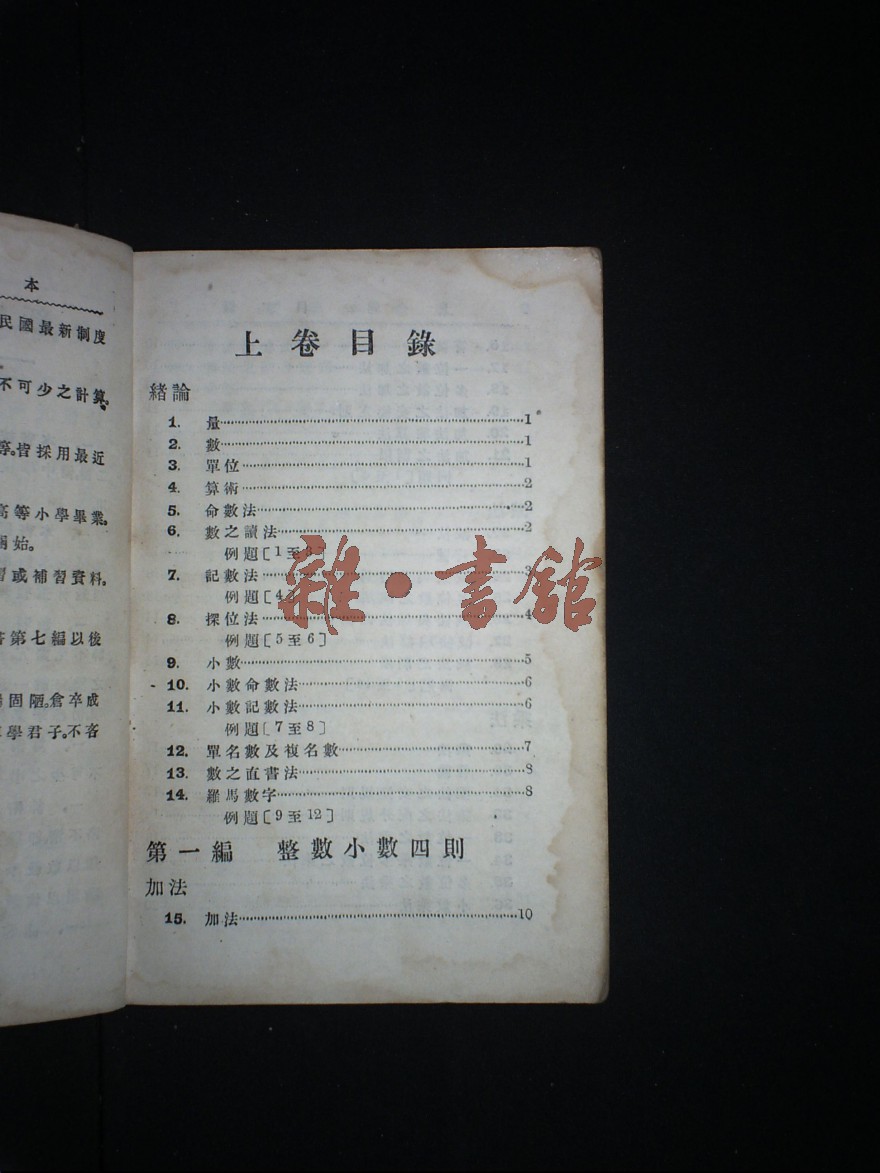 本
民國最新制度
不可少之計算。
等。皆採用最近
高等小學畢業。
開始。
習或補習資料。
第七編以後
固陋。倉卒成
學君子。不吝
上卷目錄
緒論
1. 量 1
2. 數 1
3. 單位 1
4. 算術 2
5. 命數法 2
6. 數之讀法 2
例題〔1至3〕
7. 記數法 3
例題〔4〕
8. 探位法 4
例題〔5至6〕
9. 小數 5
10. 小數命數法 6
11. 小數記數法 6
例題〔7至8〕
12. 單名數及複名數 7
13. 數之直書法 8
14. 羅馬數字 8
例題〔9至12〕
第一編 整數小數四則
加法
15. 加法 10
雜·書館